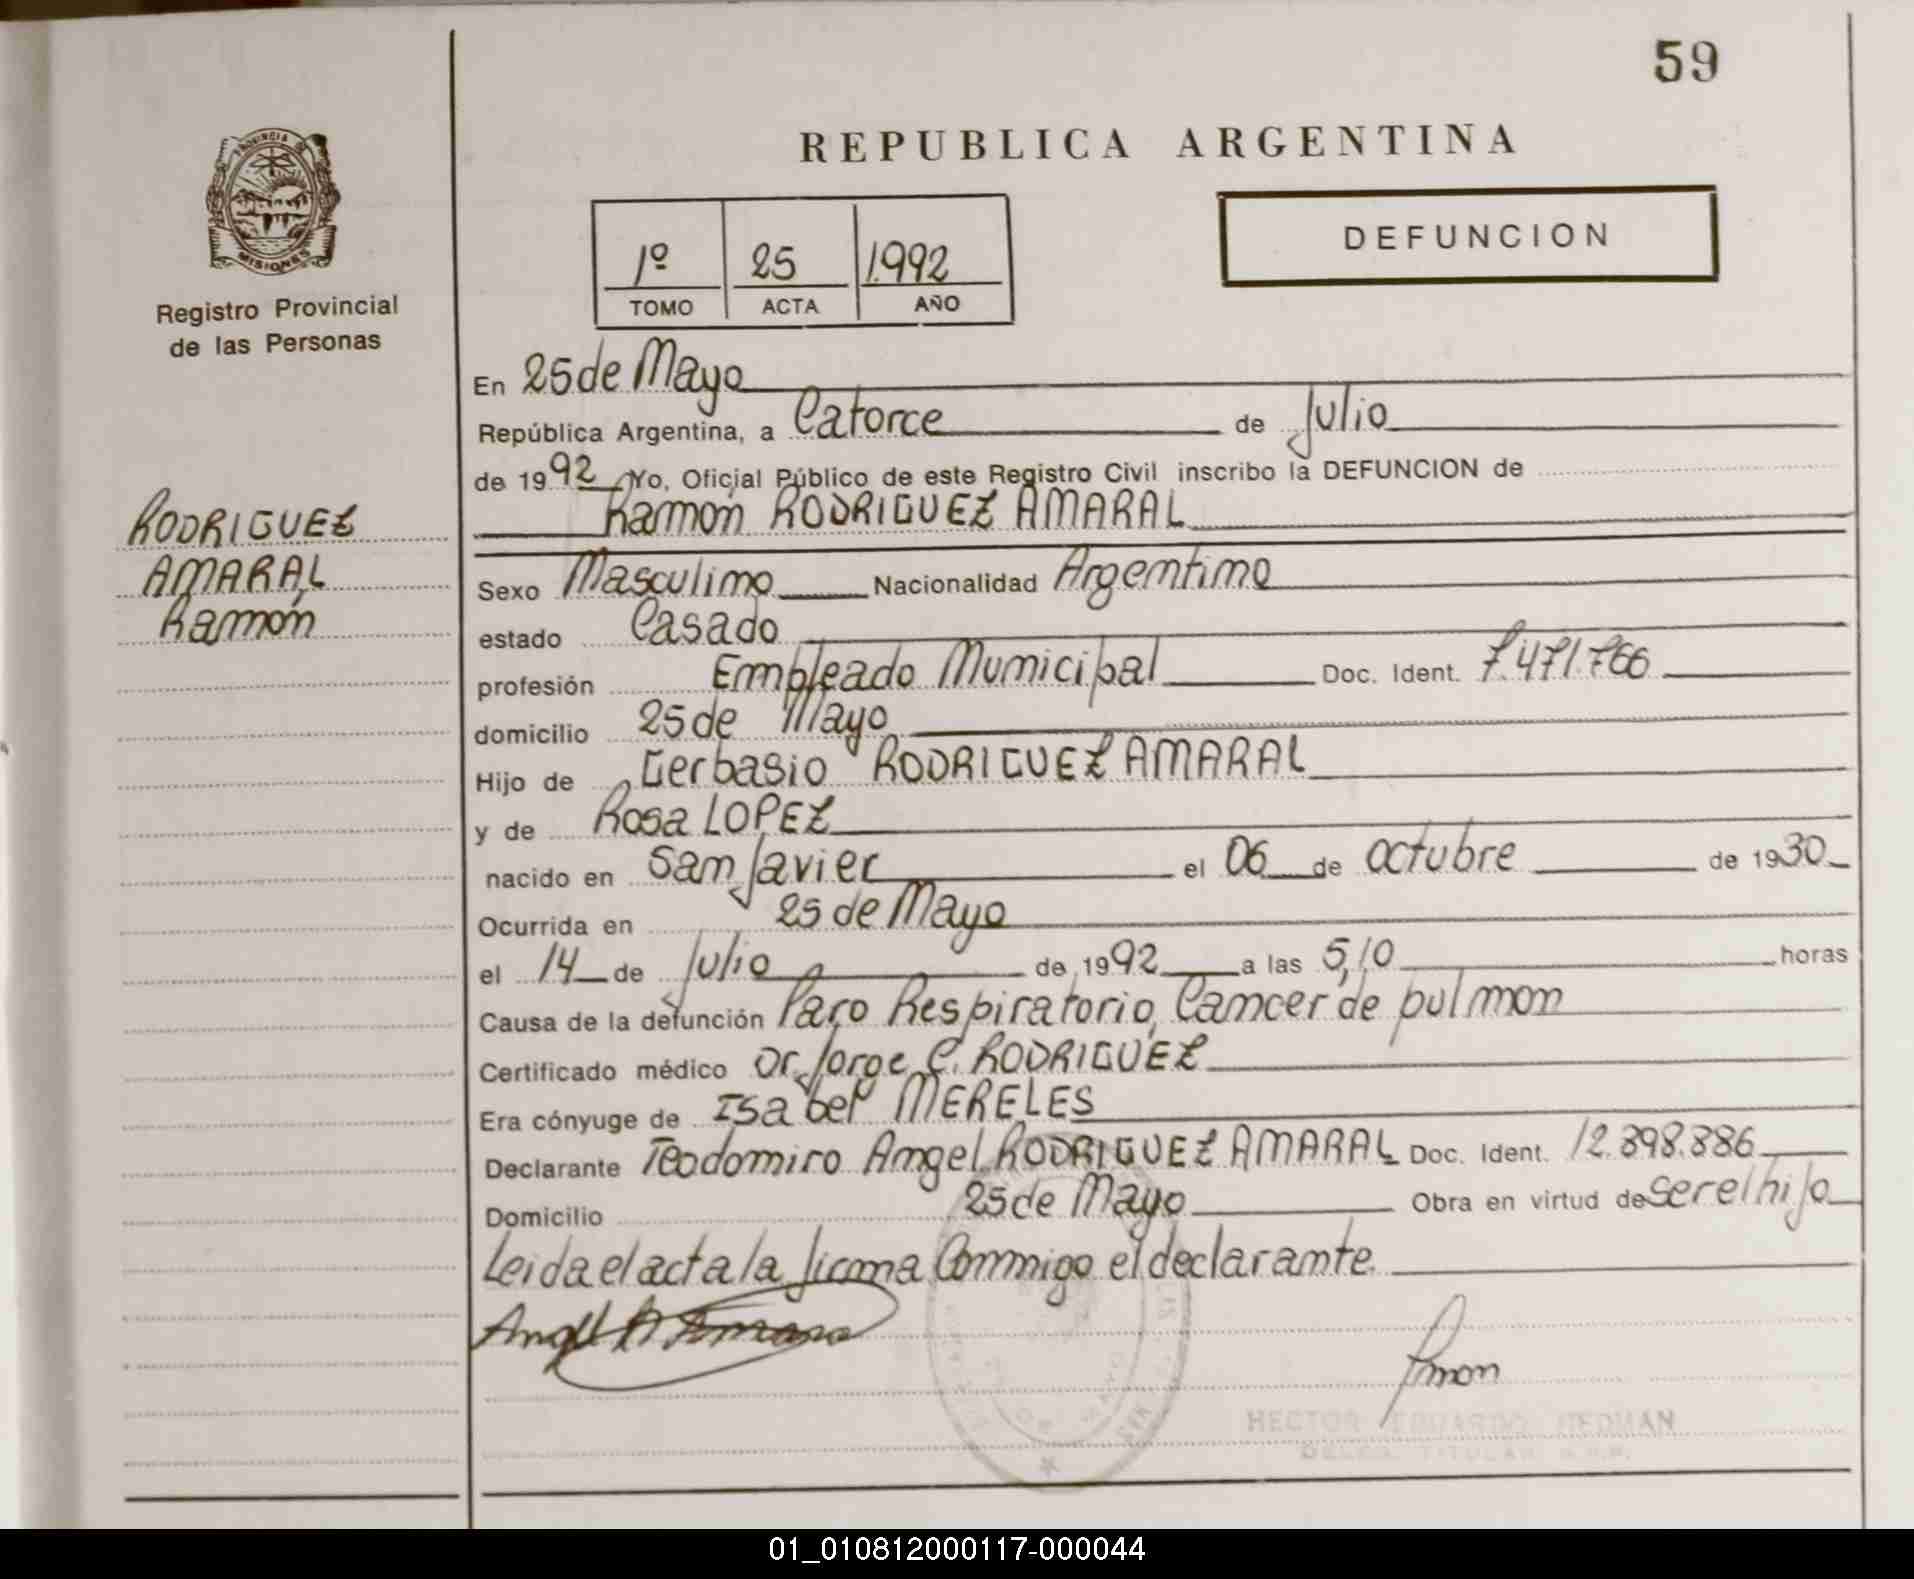 59
PROVINCIA DE
MISIONES
Registro Provincial
de las Personas
REPUBLICA ARGENTINA
1º 25 1.992
TOMO ACTA AÑO
DEFUNCION
RODRIGUEZ
AMARAL
Ramón
En 25 de Mayo
República Argentina, a Catorce de Julio
de 1992 Yo, Oficial Público de este Registro Civil inscribo la DEFUNCION de
Ramón RODRIGUEZ AMARAL
Sexo Masculino Nacionalidad Argentino
estado Casado
profesión Empleado Municipal Doc. Ident. 7.471.766
domicilio 25 de Mayo
Hijo de Gerbasio RODRIGUEZ AMARAL
y de Rosa LOPEZ
nacido en San Javier el 06 de octubre de 1930
Ocurrida en 25 de Mayo
el 14 de Julio de 1992 a las 5,10 horas
Causa de la defunción Paro Respiratorio, Cancer de pulmon
Certificado médico Dr. Jorge C. RODRIGUEZ
Era cónyuge de Isabel MERELES
Declarante Teodomiro Angel RODRIGUEZ AMARAL Doc. Ident. 12.898.886
Domicilio 25 de Mayo Obra en virtud de ser el hijo
Leida el acta la firma Conmigo el declarante
HECTOR EDUARDO HEDMAN
DELEG. TITULAR R.P.P.
01_010812000117-000044